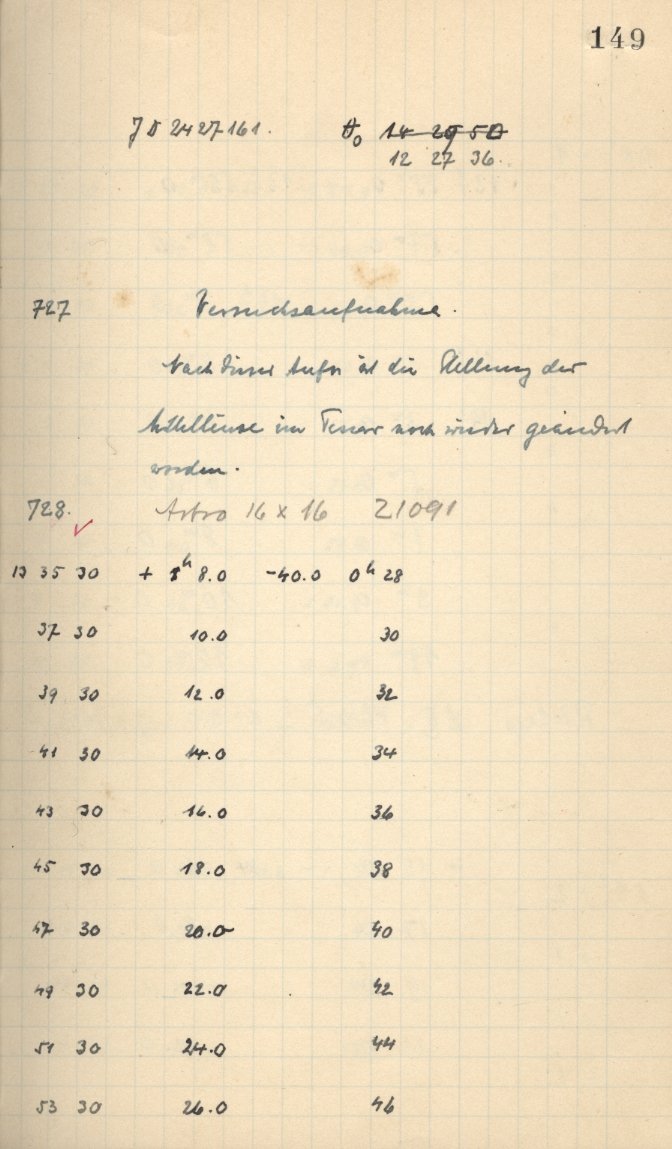 149
JD 2427161. θ₀ 14 29 50
12 27 36.
727 Versuchsaufnahme.
Nach dieser Aufn ist die Stellung der
im noch wieder geändert
worden.
728. Astro 16 x 16 21091
✓
13 35 30 + 1ʰ 8.0 -40.0 0ʰ 28
37 30 10.0 30
39 30 12.0 32
41 30 14.0 34
43 30 16.0 36
45 30 18.0 38
47 30 20.0 40
49 30 22.0 42
51 30 24.0 44
53 30 26.0 46